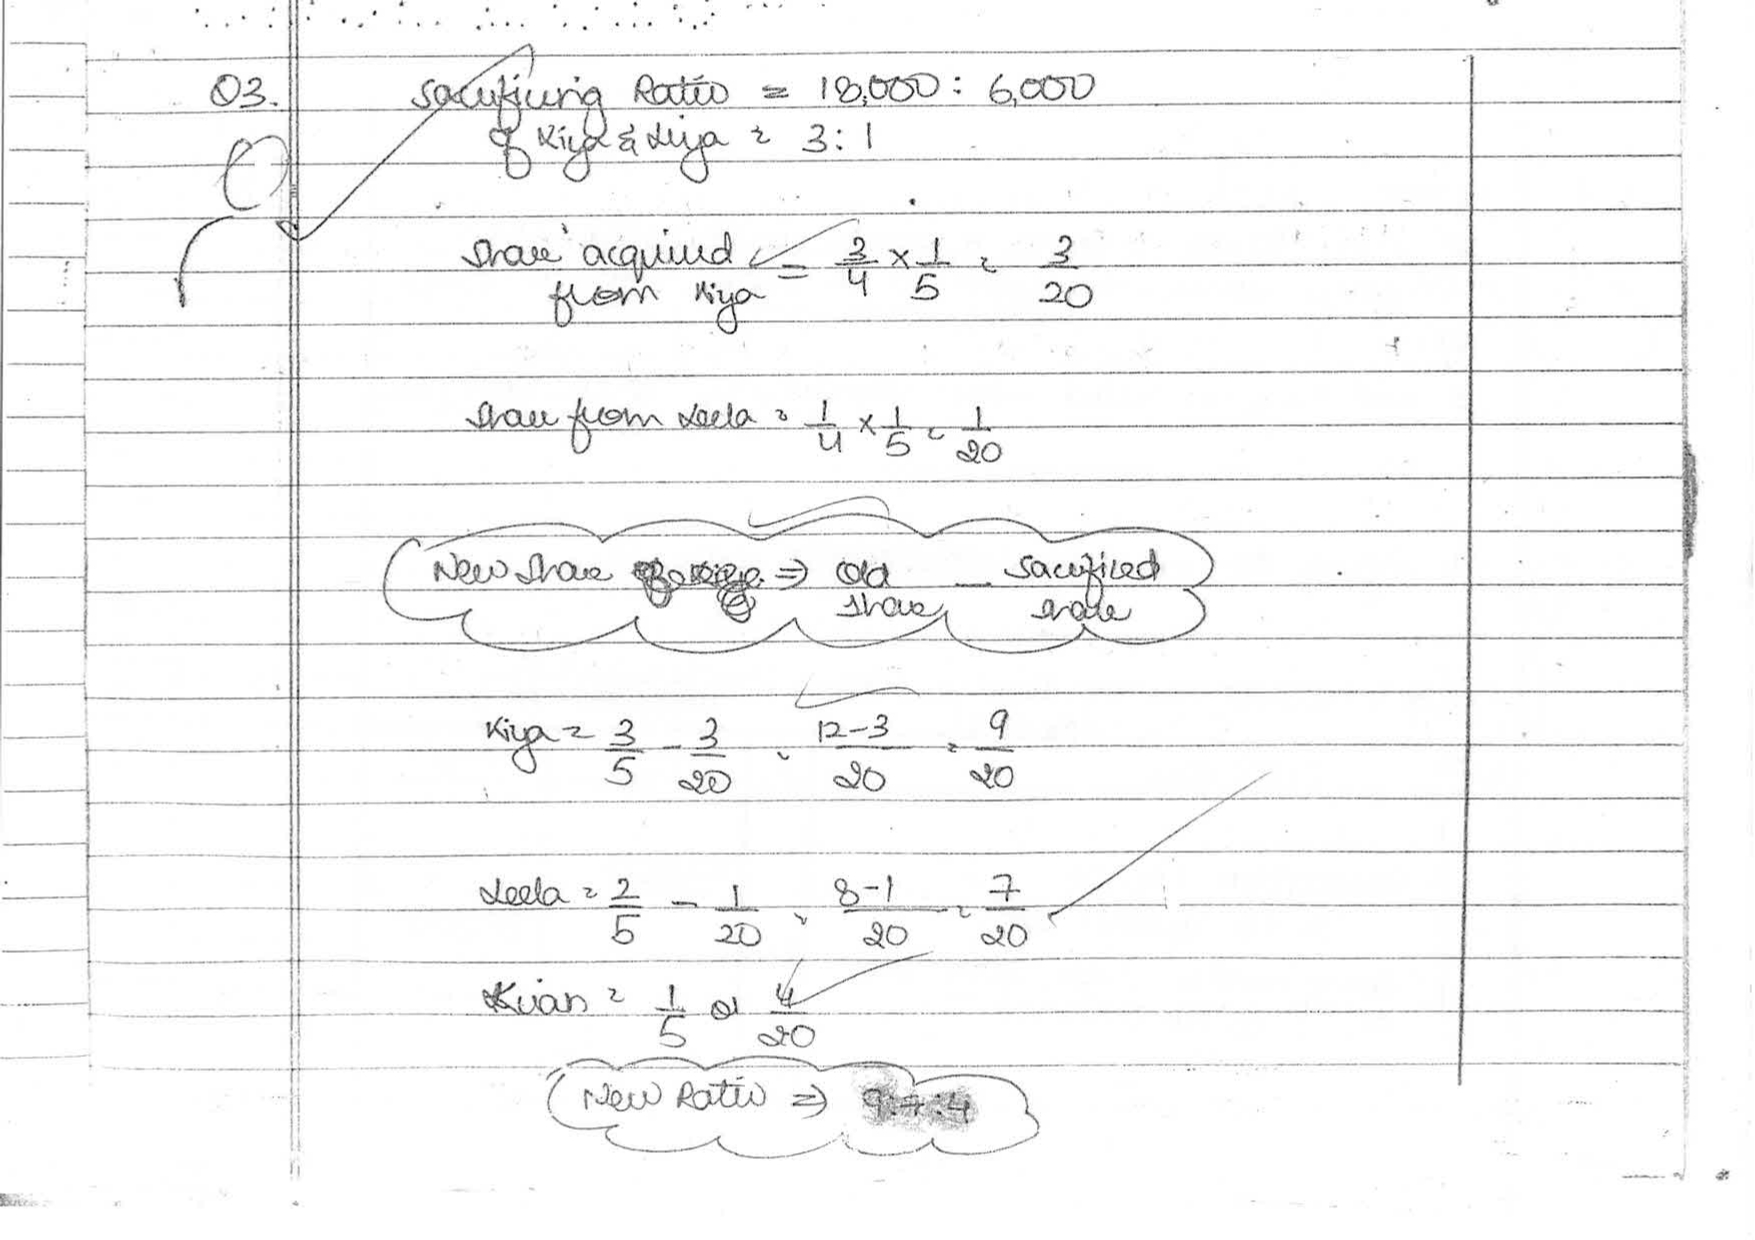 Q3. Sacrificing Ratio = 18,000 : 6,000
of Kiya & Liya = 3 : 1
Share acquired from Kiya = 3/4 × 1/5 = 3/20
Share from Leela = 1/4 × 1/5 = 1/20
New Share ⇒ Old share — Sacrificed share
Kiya = 3/5 - 3/20 = 12-3/20 = 9/20
Leela = 2/5 - 1/20 = 8-1/20 = 7/20
Kian = 1/5 or 4/20
New Ratio ⇒ 9:7:4